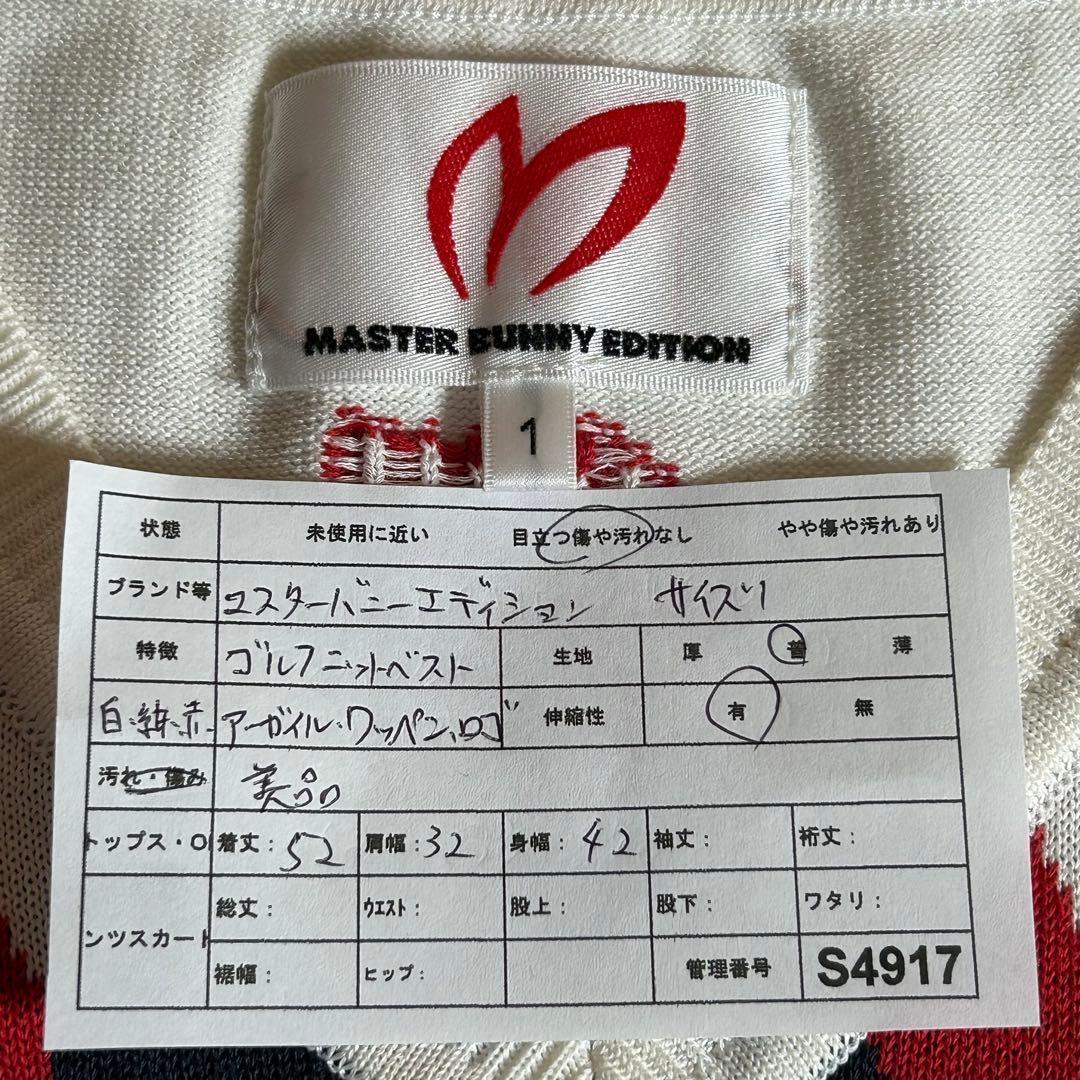 MASTER BUNNY EDITION
1
状態 未使用に近い 目立つ傷や汚れなし やや傷や汚れあり
ブランド等 マスターバニーエディション サイズ1
特徴 ゴルフニットベスト 生地 厚 普 薄
白・紺・赤 アーガイル・ワッペン、ロゴ 伸縮性 有 無
汚れ・傷み 美品
トップス・O 着丈: 52 肩幅: 32 身幅: 42 袖丈: 裄丈:
ンツスカート 総丈: ウエスト: 股上: 股下: ワタリ:
裾幅: ヒップ: 管理番号 S4917